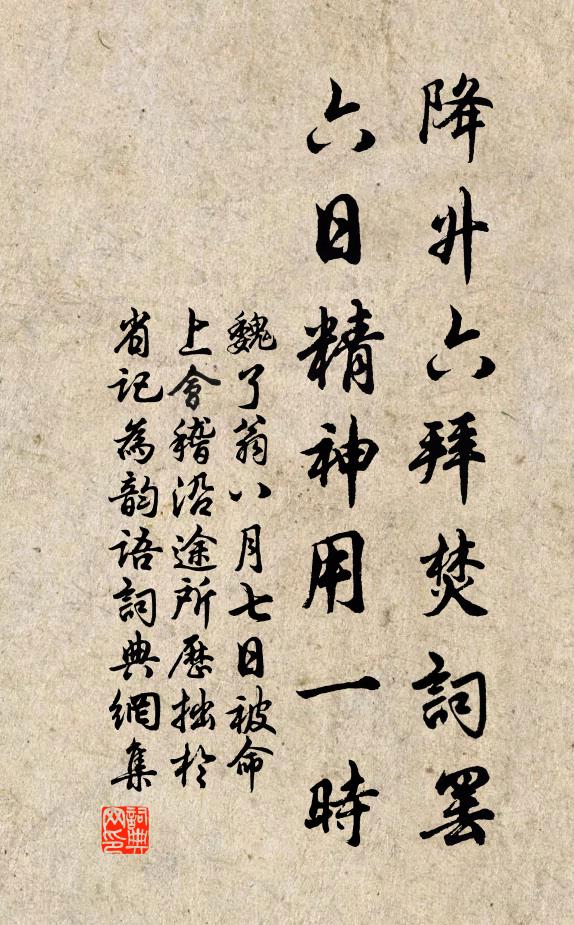 降升六拜焚詞罢
六日精神用一時
魏了翁八月七日被命
上會稽沿途所歷拙於
省記為韵语詞典網集
詞典
网印